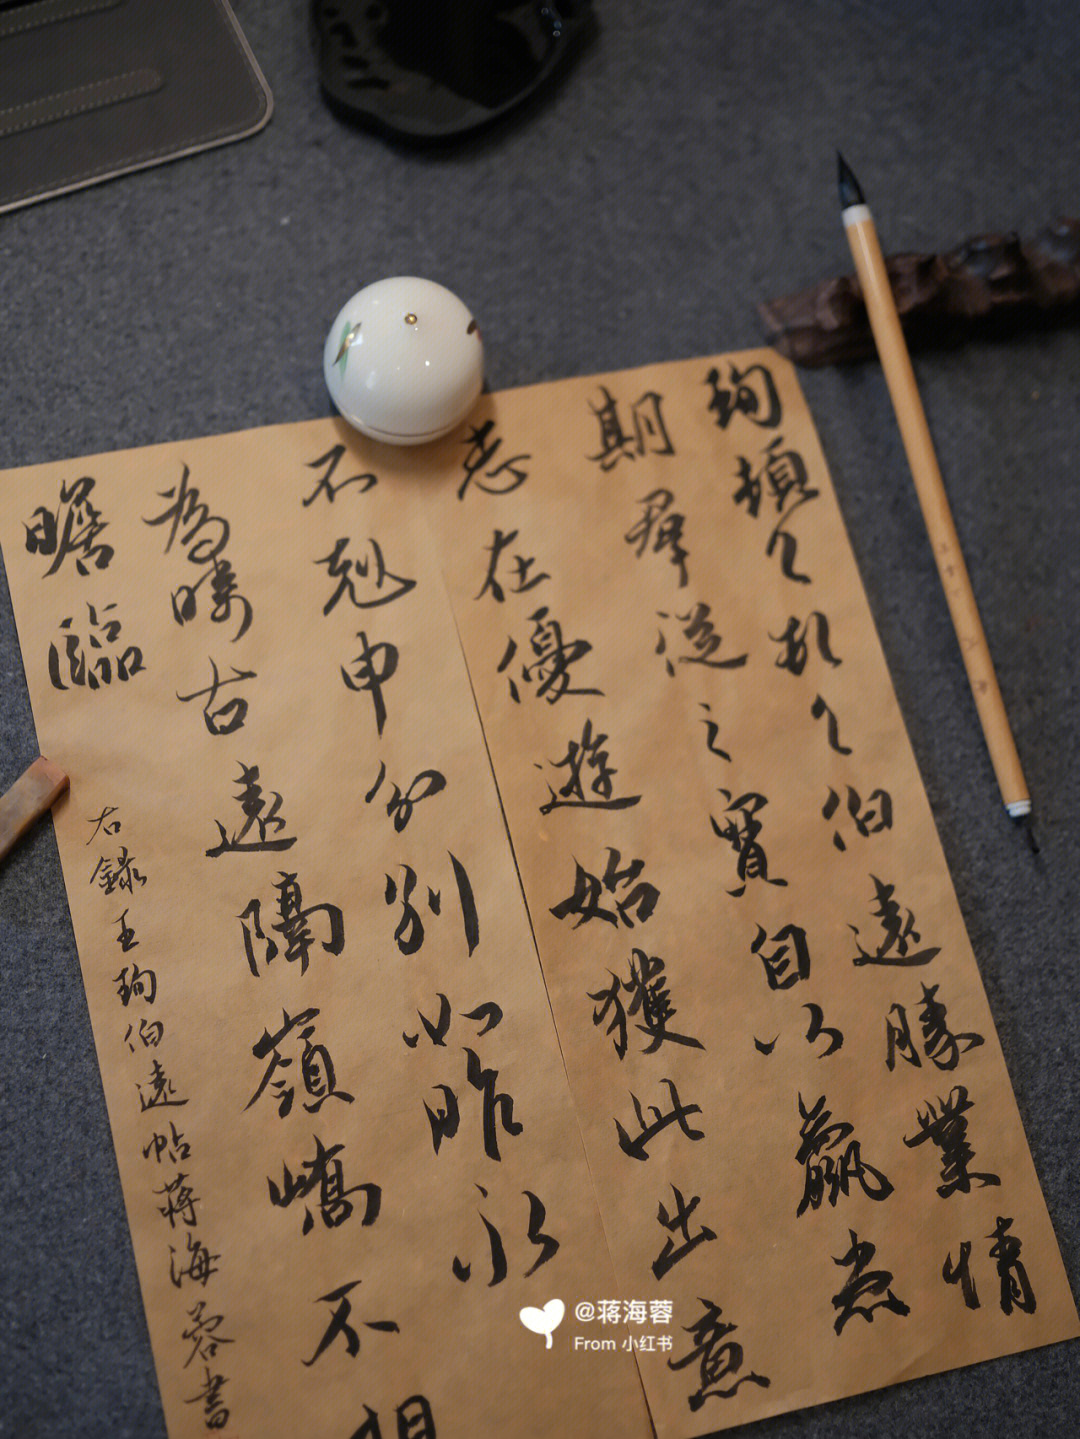 珣頓首頓首伯遠勝業情
期羣從之寶自以羸患
志在優遊始獲此出意
不剋申分別如昨永
為疇古遠隔嶺嶠不相
瞻臨
右錄王珣伯遠帖蔣海蓉書
@蒋海蓉
From 小红书